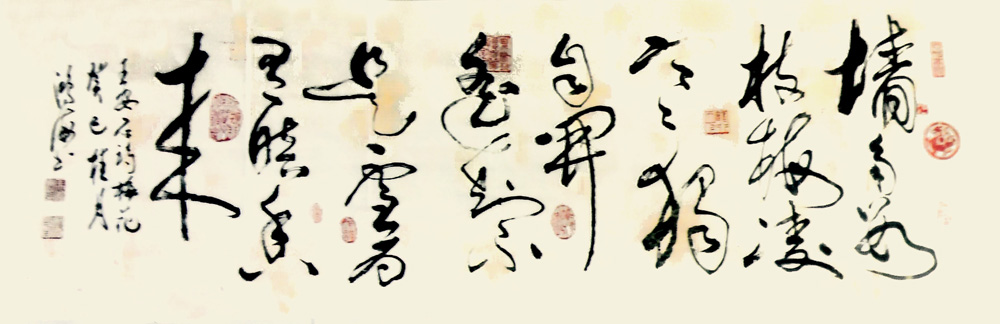 墙角数
枝梅凌
寒獨
自開
遥知不
是雪為
有暗香
来
王安石詩梅花
癸巳桂月